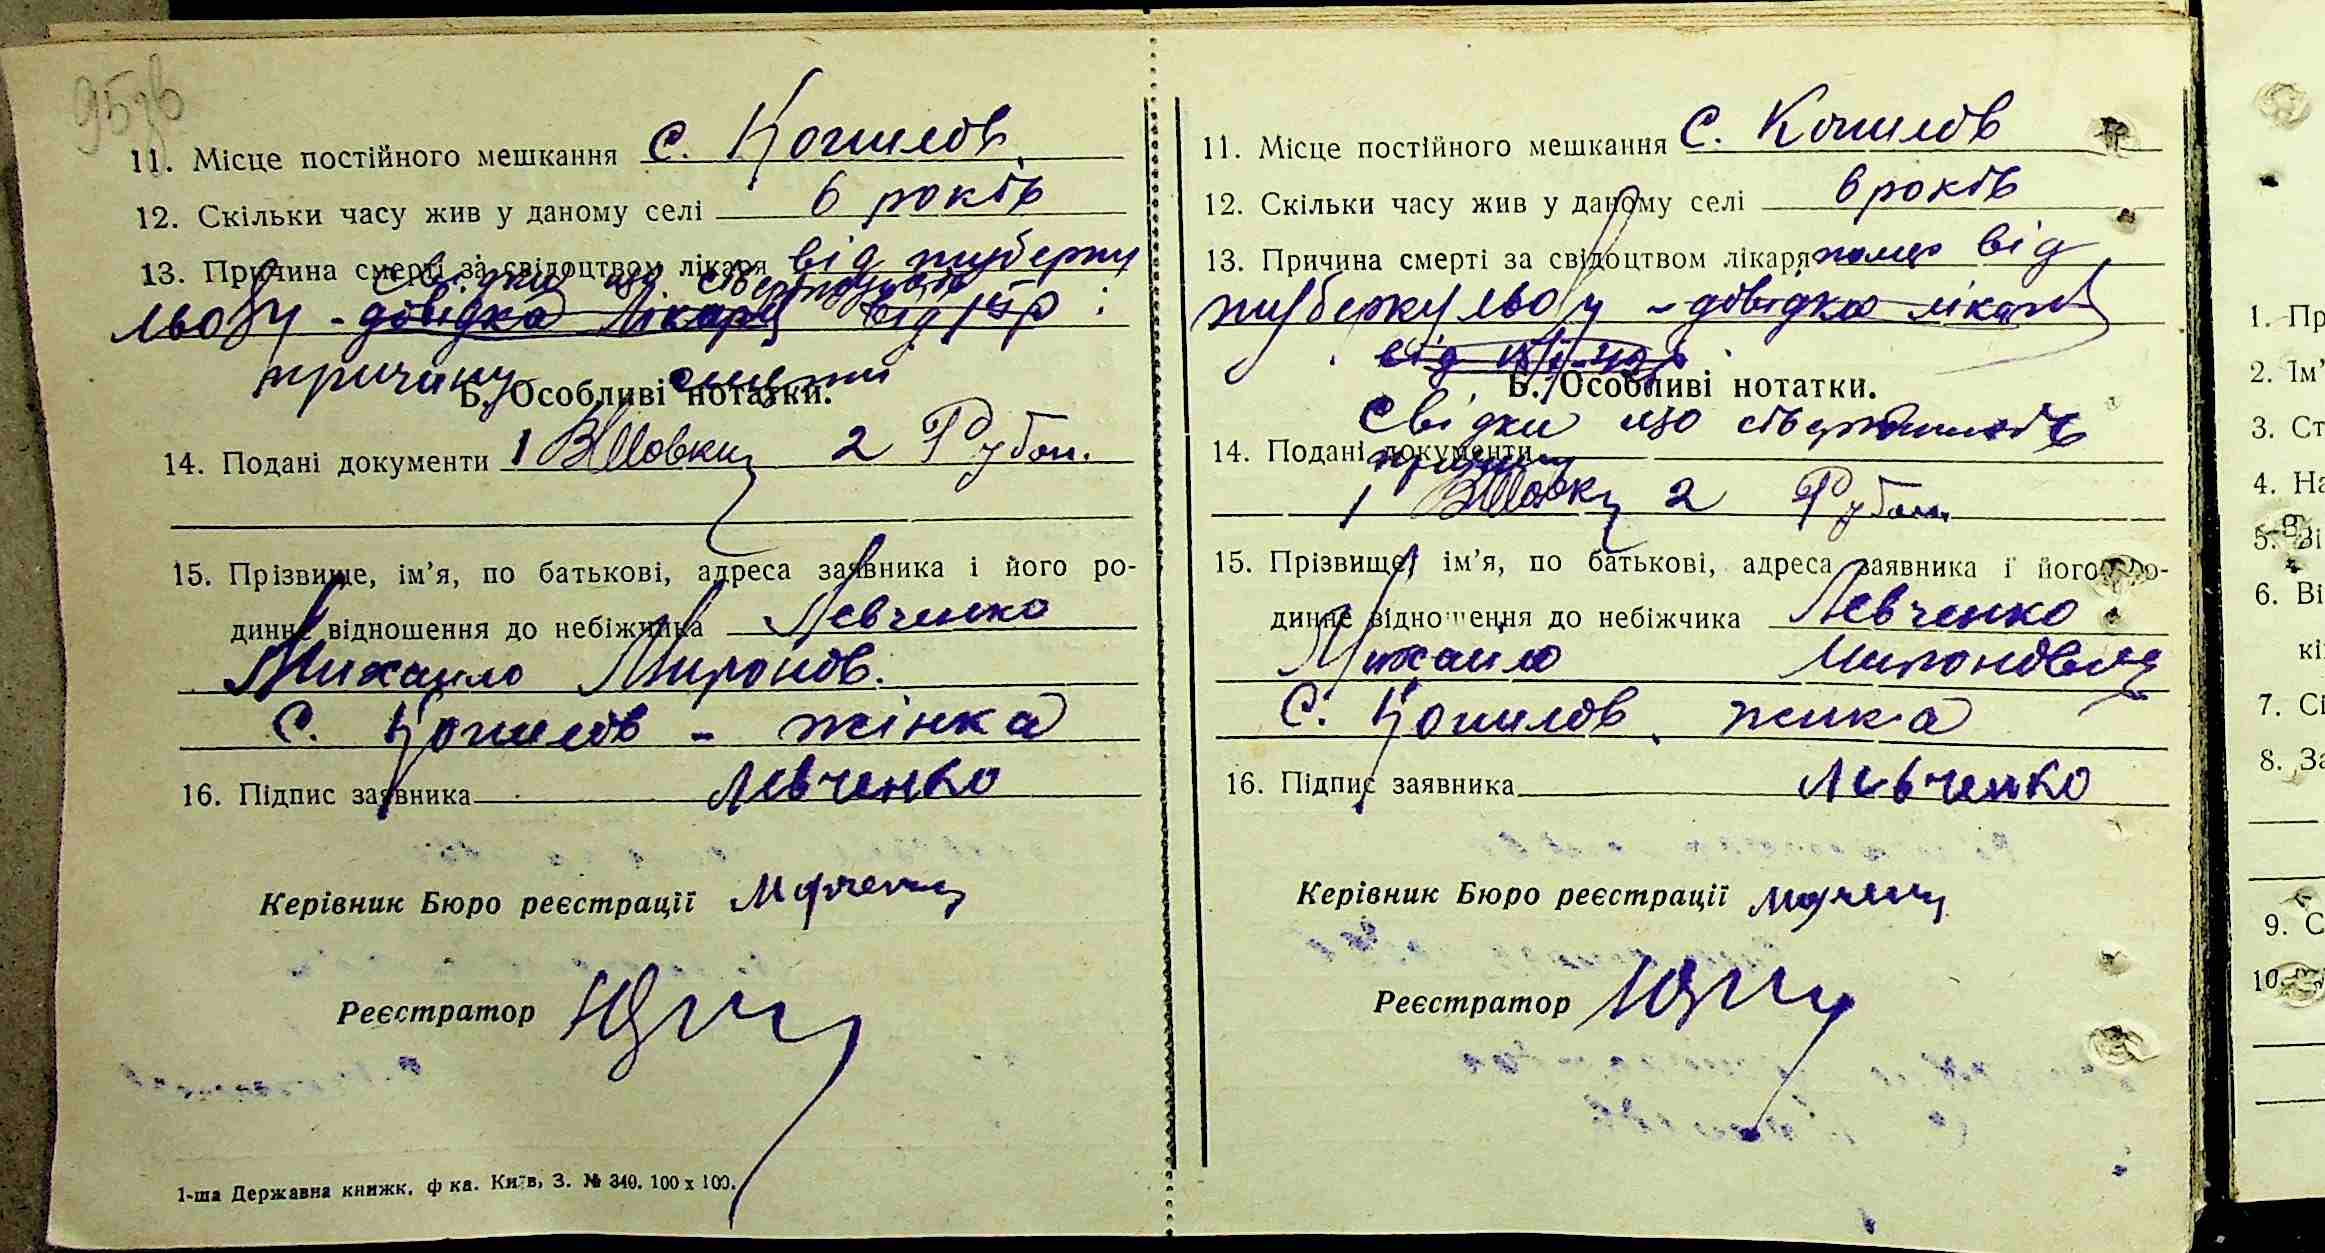 95зв
11. Місце постійного мешкання с. Копилів
12. Скільки часу жив у даному селі 6 років
13. Причина смерті за свідоцтвом лікаря від туберку
свідки що
льозу - довідка лікаря від
причину смерті
Б. Особливі нотатки.
14. Подані документи 1 ВШовку 2 Рубан.
15. Прізвище, ім'я, по батькові, адреса заявника і його ро-
динне відношення до небіжчика Левченко
Михайло Миронов.
с. Копилів - жінка
16. Підпис заявника Левченко
Керівник Бюро реєстрації
Реєстратор
1-ша Державна книжк. ф ка. Київ, З. № 340. 100 х 100.
11. Місце постійного мешкання с. Копилів
12. Скільки часу жив у даному селі 6 років
13. Причина смерті за свідоцтвом лікаря помер від
туберкульозу - довідка лікаря
від
Б. Особливі нотатки.
Свідки що
14. Подані документи
причину
1 ВШовку 2 Рубан.
15. Прізвище, ім'я, по батькові, адреса заявника і його ро-
динне відношення до небіжчика Левченко
Михайло Миронович
с. Копилів, жінка
16. Підпис заявника Левченко
Керівник Бюро реєстрації
Реєстратор
1. Пр
2. Ім'
3. Ст
4. На
5. Ві
6. Ві
кі
7. Сі
8. За
9. С
10.